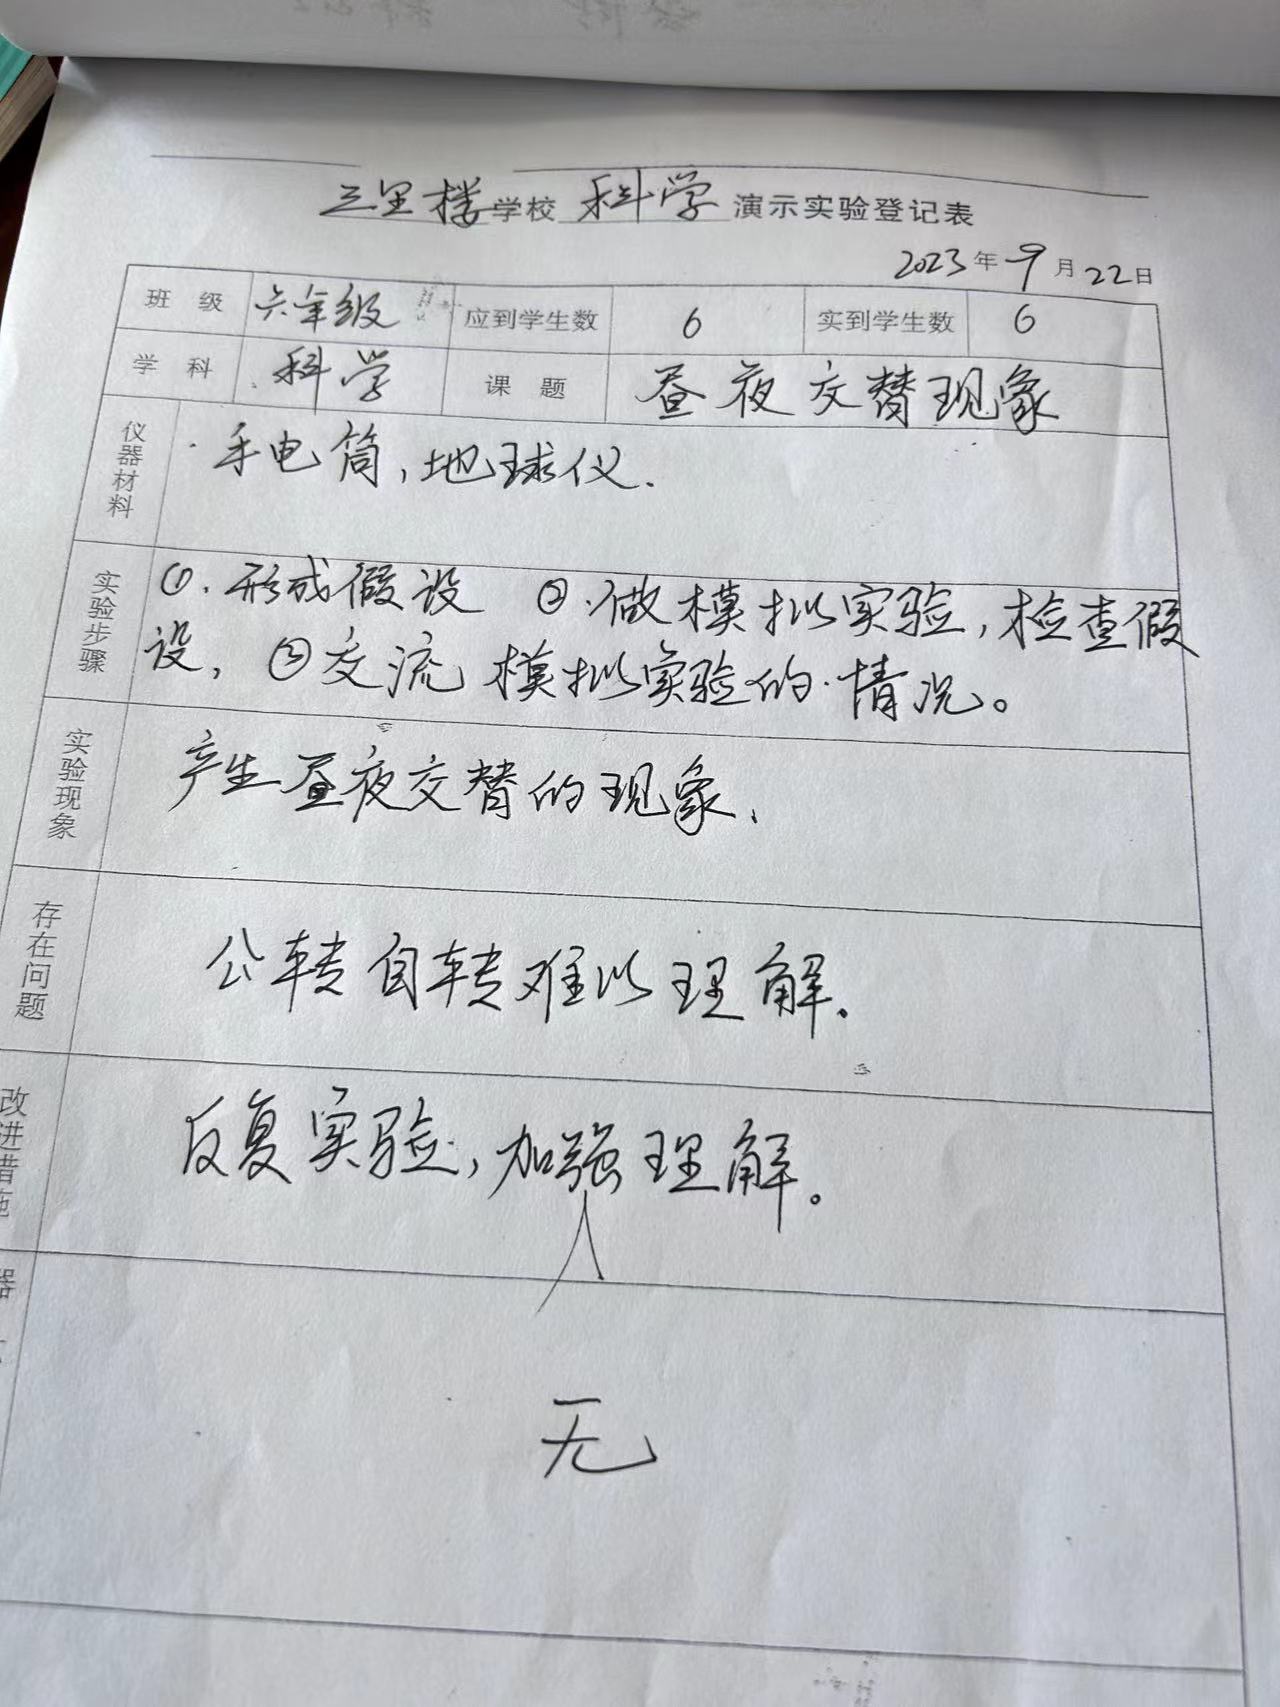 三里楼学校 科学 演示实验登记表
2023年9月22日
班级 六年级 应到学生数 6 实到学生数 6
学科 科学 课题 昼夜交替现象
仪器材料 手电筒,地球仪.
实验步骤 ①.形成假设 ②.做模拟实验,检查假
设, ③交流模拟实验的情况。
实验现象 产生昼夜交替的现象.
存在问题 公转自转难以理解。
改进措施 反复实验,加强理解。
器
无